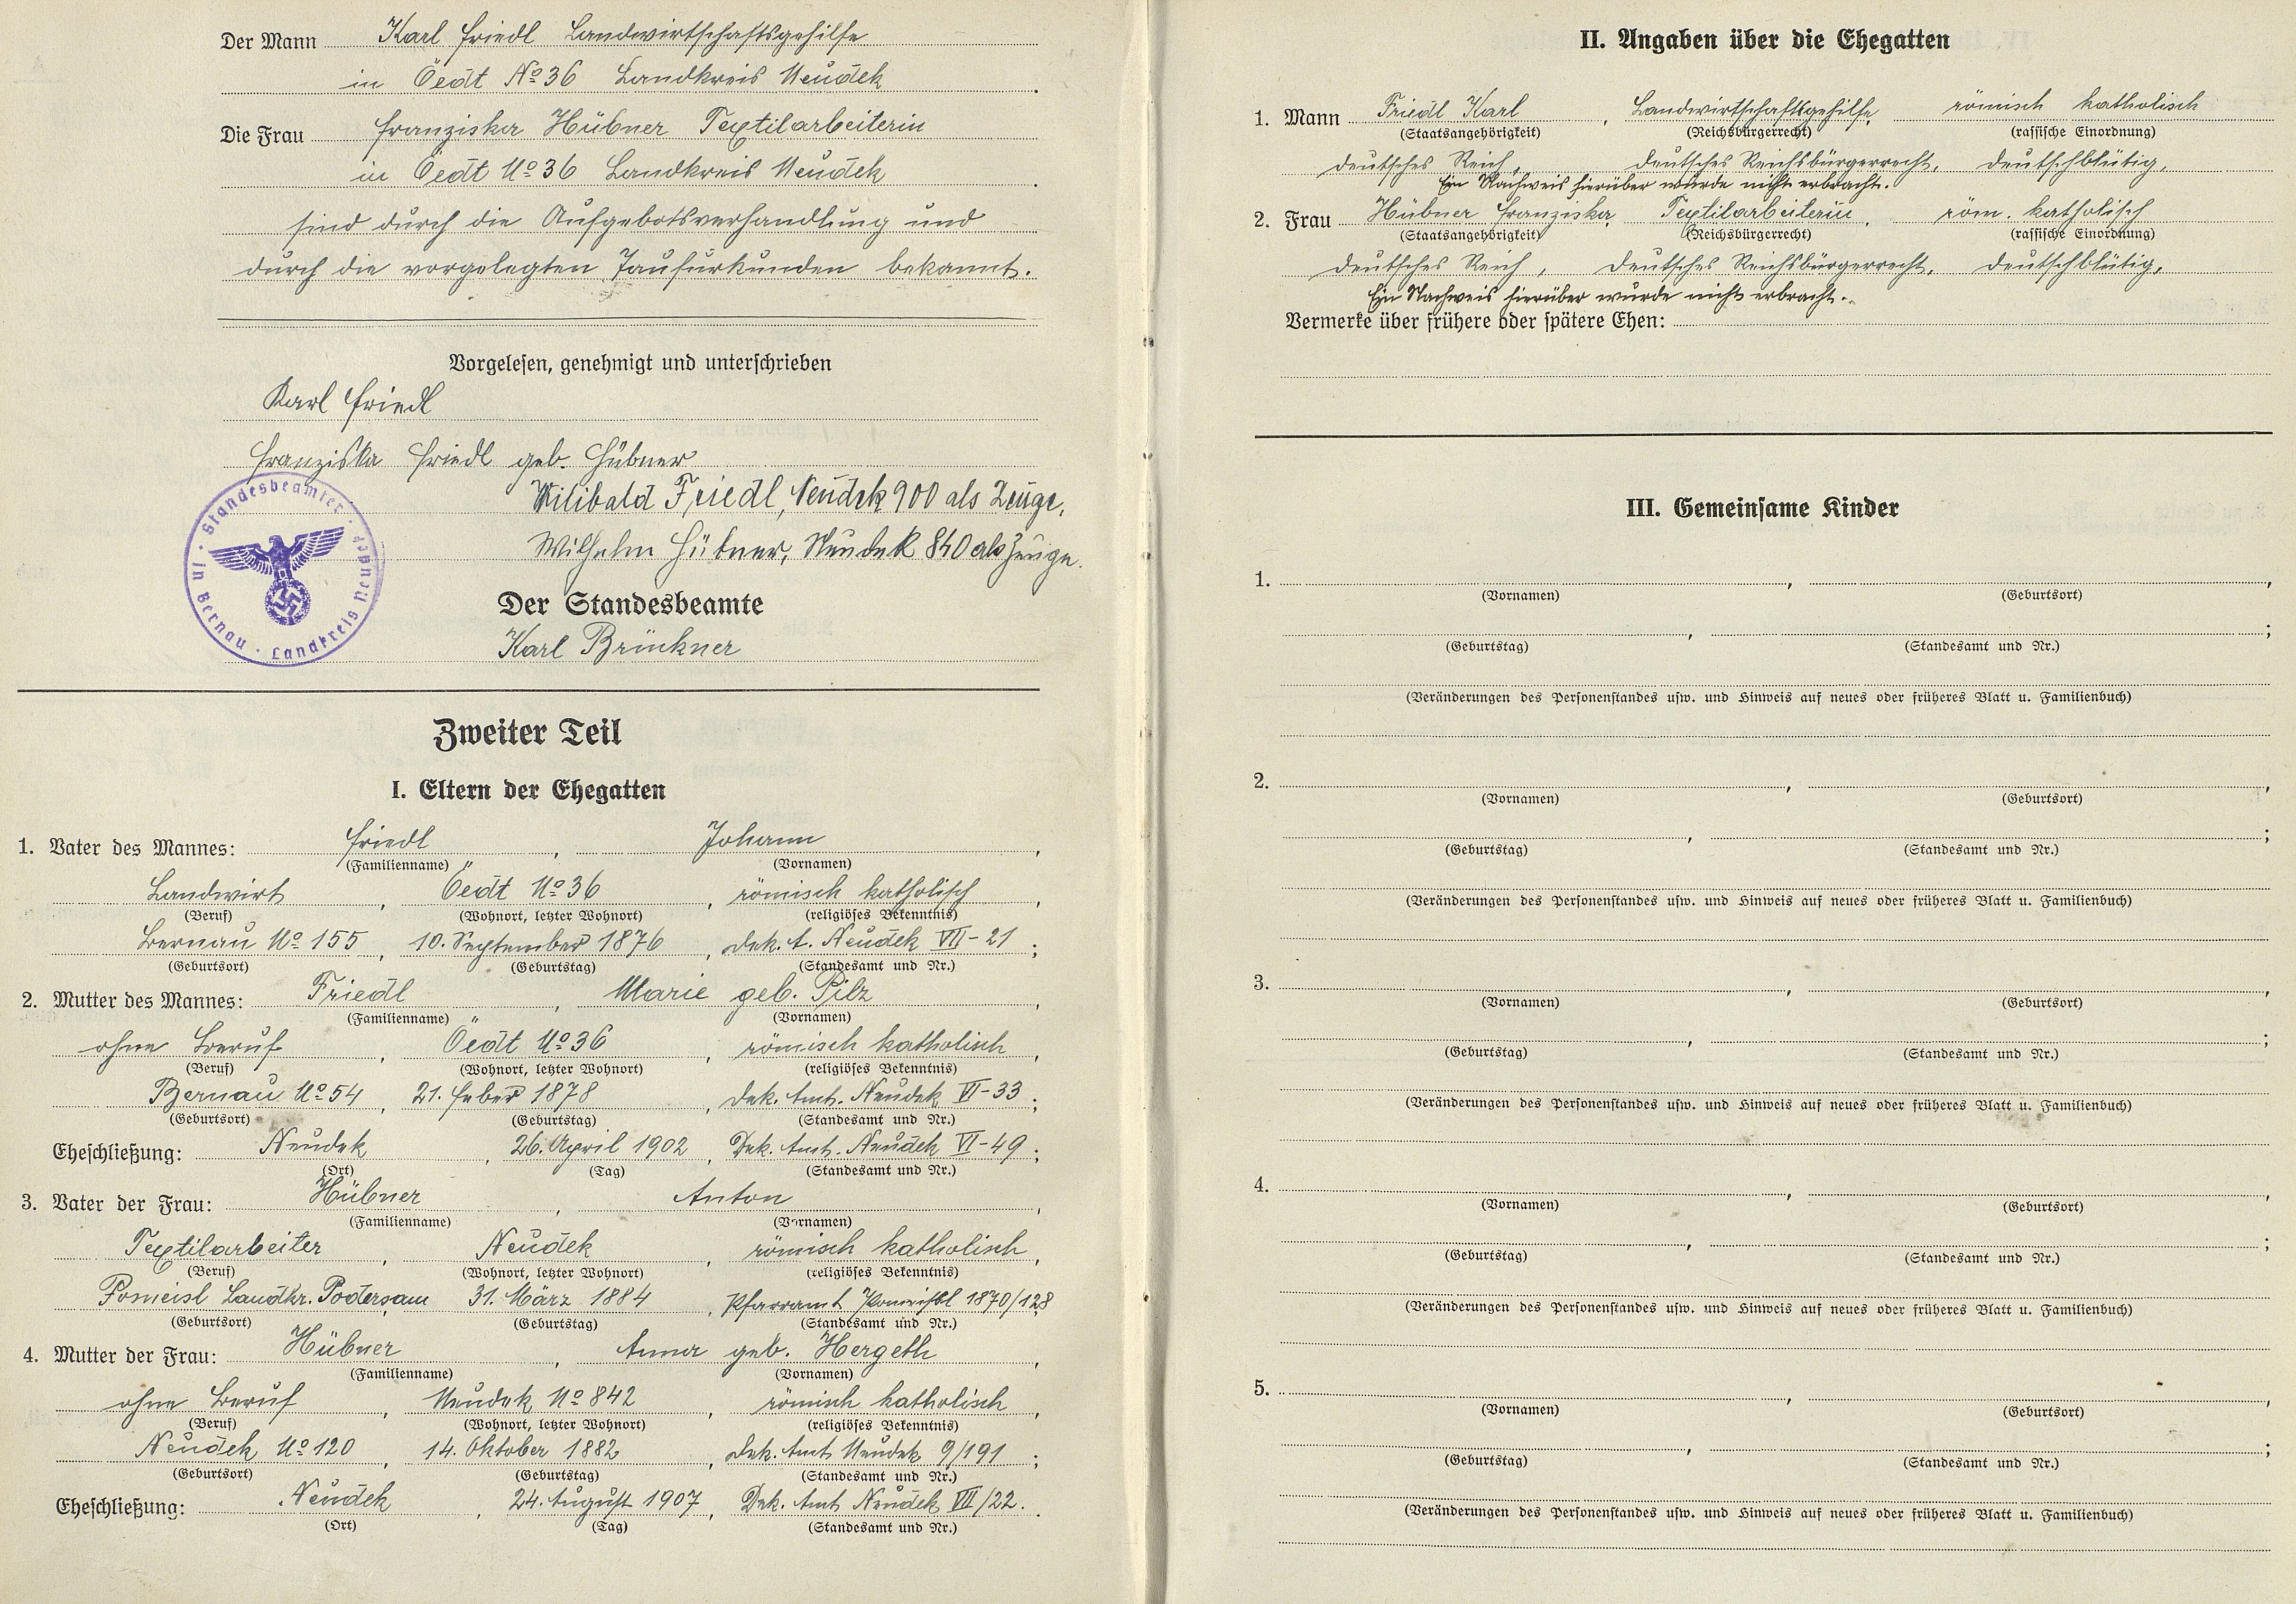 Der Mann Karl Friedl Landwirtschaftsgehilfe
in Öedt No 36 Landkreis Neudek.
Die Frau Franziska Hübner Textilarbeiterin
in Öedt No 36 Landkreis Neudek.
sind durch die Aufgebotsverhandlung und
durch die vorgelegten Taufurkunden bekannt.
Vorgelesen, genehmigt und unterschrieben
Karl Friedl
Franziska Friedl geb. Hübner
Wilibald Friedl, Neudek 900 als Zeuge,
Wilhelm Hübner, Neudek 840 als Zeuge.
Standesbeamter · in Bernau · Landkreis Neudek ·
Der Standesbeamte
Karl Brückner
Zweiter Teil
I. Eltern der Ehegatten
1. Vater des Mannes: Friedl, Johann,
(Familienname) (Vornamen)
Landwirt, Öedt No 36, römisch katholisch,
(Beruf) (Wohnort, letzter Wohnort) (religiöses Bekenntnis)
Bernau No 155, 10. September 1876, Dek. A. Neudek VII-21;
(Geburtsort) (Geburtstag) (Standesamt und Nr.)
2. Mutter des Mannes: Friedl, Marie geb. Pilz,
(Familienname) (Vornamen)
ohne Beruf, Öedt No 36, römisch katholisch,
(Beruf) (Wohnort, letzter Wohnort) (religiöses Bekenntnis)
Bernau No 54, 21. Feber 1878, Dek. Amt. Neudek VI-33;
(Geburtsort) (Geburtstag) (Standesamt und Nr.)
Eheschließung: Neudek, 26. April 1902, Dek. Amt. Neudek VI-49;
(Ort) (Tag) (Standesamt und Nr.)
3. Vater der Frau: Hübner, Anton,
(Familienname) (Vornamen)
Textilarbeiter, Neudek, römisch katholisch,
(Beruf) (Wohnort, letzter Wohnort) (religiöses Bekenntnis)
Pomeisl Landkr. Podersam, 31. März 1884, Pfarramt Pomeisl 1870/128
(Geburtsort) (Geburtstag) (Standesamt und Nr.)
4. Mutter der Frau: Hübner, Anna geb. Hergeth,
(Familienname) (Vornamen)
ohne Beruf, Neudek No 842, römisch katholisch,
(Beruf) (Wohnort, letzter Wohnort) (religiöses Bekenntnis)
Neudek No 120, 14. Oktober 1882, Dek. Amt Neudek 9/191;
(Geburtsort) (Geburtstag) (Standesamt und Nr.)
Eheschließung: Neudek, 24. August 1907, Dek. Amt Neudek VII/22.
(Ort) (Tag) (Standesamt und Nr.)
II. Angaben über die Ehegatten
1. Mann Friedl Karl, Landwirtschaftsgehilfe, römisch katholisch
(Staatsangehörigkeit) (Reichsbürgerrecht) (rassische Einordnung)
deutsches Reich, deutsches Reichsbürgerrecht, deutschblütig,
Ein Nachweis hierüber wurde nicht erbracht.
2. Frau Hübner Franziska, Textilarbeiterin, röm. katholisch
(Staatsangehörigkeit) (Reichsbürgerrecht) (rassische Einordnung)
deutsches Reich, deutsches Reichsbürgerrecht, deutschblütig,
Ein Nachweis hierüber wurde nicht erbracht.
Vermerke über frühere oder spätere Ehen:
III. Gemeinsame Kinder
1. , ,
(Vornamen) (Geburtsort)
, ;
(Geburtstag) (Standesamt und Nr.)
(Veränderungen des Personenstandes usw. und Hinweis auf neues oder früheres Blatt u. Familienbuch)
2. , ,
(Vornamen) (Geburtsort)
, ;
(Geburtstag) (Standesamt und Nr.)
(Veränderungen des Personenstandes usw. und Hinweis auf neues oder früheres Blatt u. Familienbuch)
3. , ,
(Vornamen) (Geburtsort)
, ;
(Geburtstag) (Standesamt und Nr.)
(Veränderungen des Personenstandes usw. und Hinweis auf neues oder früheres Blatt u. Familienbuch)
4. , ,
(Vornamen) (Geburtsort)
, ;
(Geburtstag) (Standesamt und Nr.)
(Veränderungen des Personenstandes usw. und Hinweis auf neues oder früheres Blatt u. Familienbuch)
5. , ,
(Vornamen) (Geburtsort)
, ;
(Geburtstag) (Standesamt und Nr.)
(Veränderungen des Personenstandes usw. und Hinweis auf neues oder früheres Blatt u. Familienbuch)